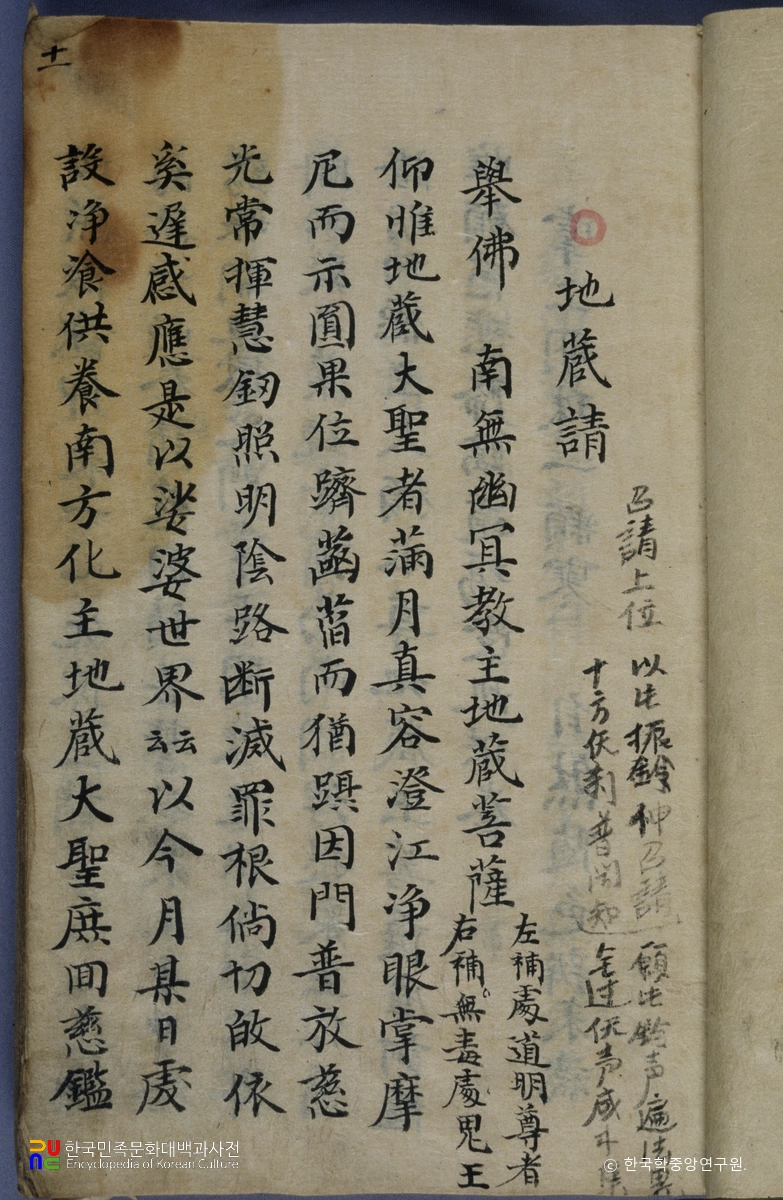 十一
地蔵請
召請上位
以此振鈴伸召請 願此鈴声遍法界
十方仏刹普聞知
舉佛 南無幽冥教主地蔵菩薩
左補處道明尊者
右補無毒處鬼王
仰惟地蔵大聖者滿月真容澄江浄眼掌摩
尼而示圓果位躋菡萏而猶躡因門普放慈
光常揮慧釰照明陰路断滅罪根倘切啟依
奚遅感應是以娑婆世界云云以今月某日虔
設浄飡供養南方化主地蔵大聖庶囬慈鑑
한국민족문화대백과사전
Encyclopedia of Korean Culture
© 한국학중앙연구원.